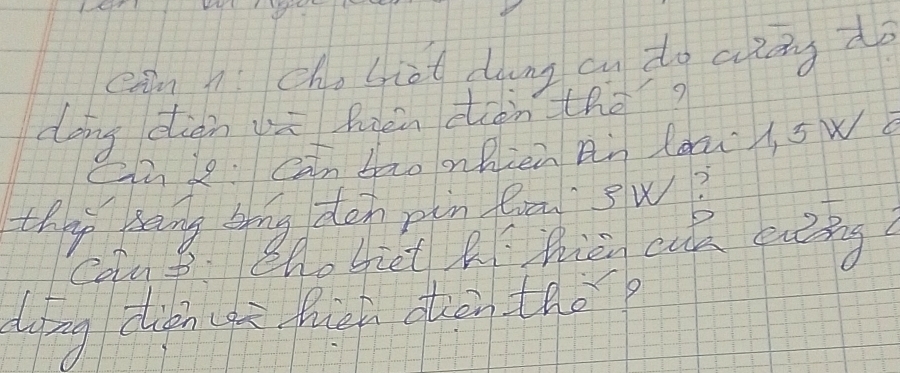 Câu 1: Cho biết dụng cụ đo cường độ
dòng điện và hiệu điện thế?
Câu 2: Cần bao nhiên pin loại 1,5W
thắp sáng bóng đèn pin loại 3W?
Câu 3: Cho biết kí hiệu của cường
dòng điện và hiệu điện thế?